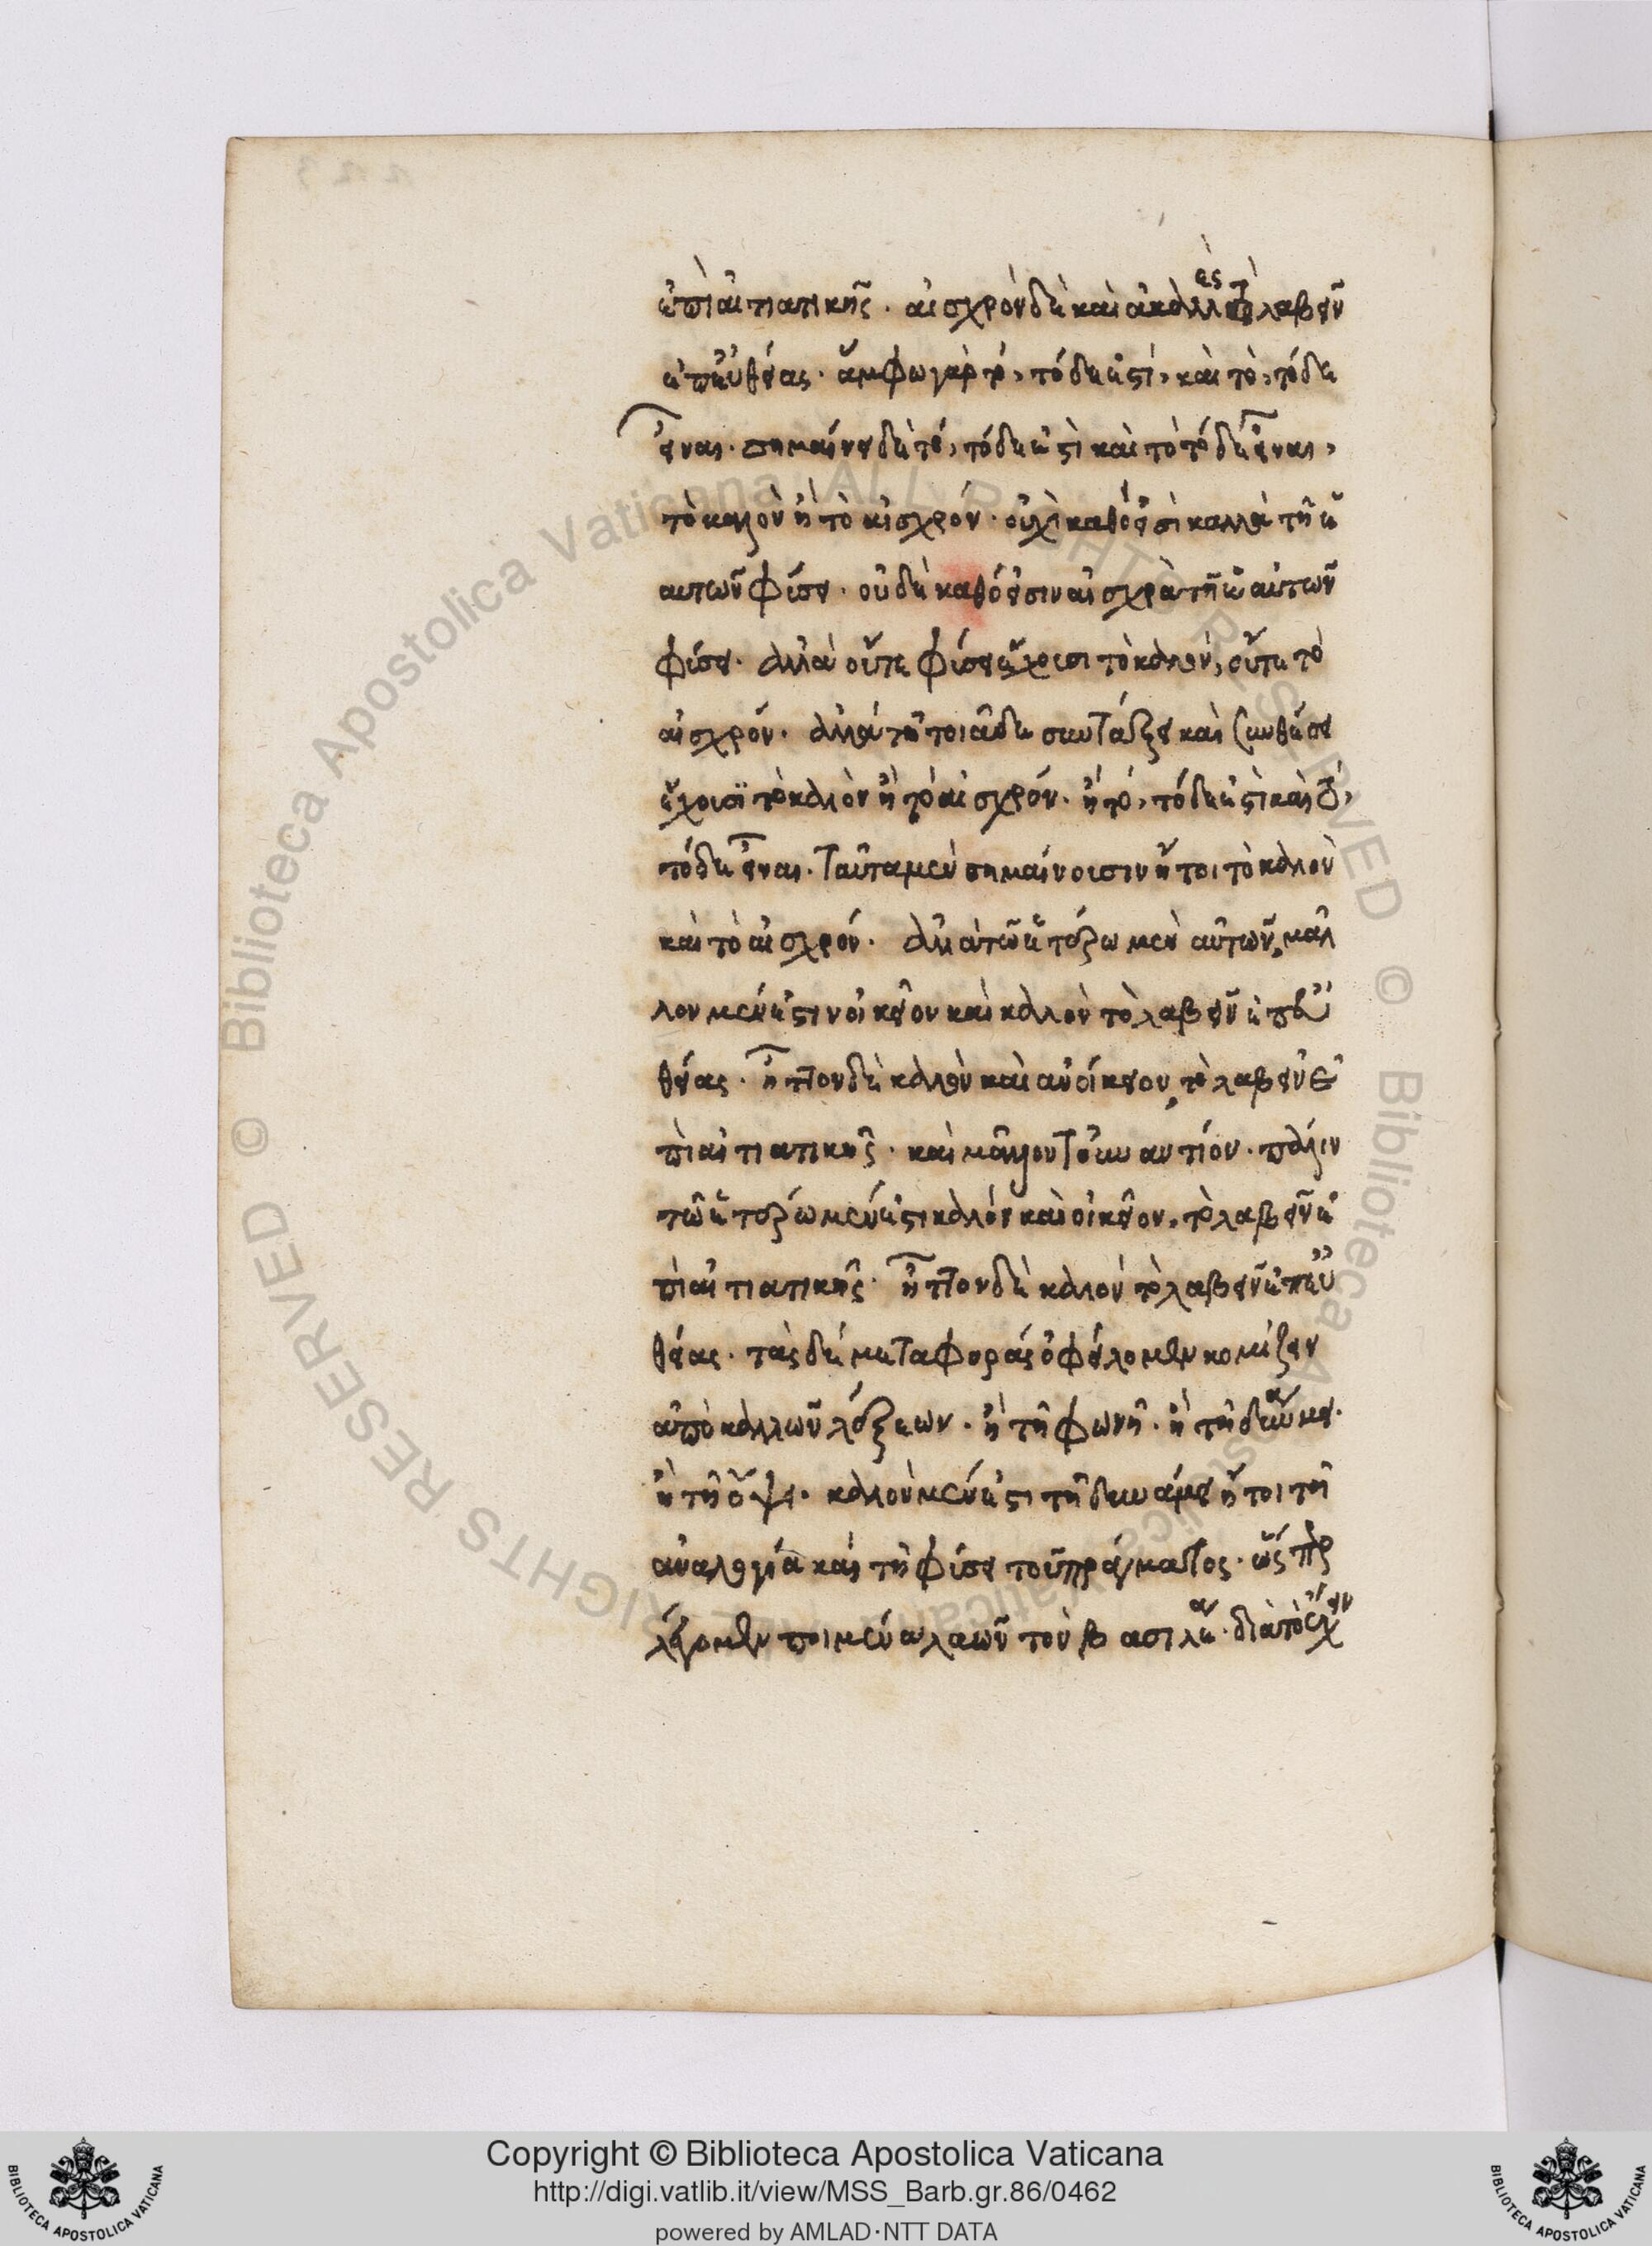 ἐπὶ αἰτιατικῆς. αἰσχρὸν δὲ καὶ ἀκαλλὲς τὸ λαβεῖν
ἐπ' εὐθείας. ἄμφω γὰρ τό, τόδε ἐστί, καὶ τὸ, τόδε
εἶναι. σημαίνει δὲ τό, τόδε ἐστὶ καὶ τὸ τόδε εἶναι,
τὸ καλὸν ἢ τὸ αἰσχρόν. οὐχὶ καθό εἰσι καλλὰ τῆ ἑ
αυτῶν φύσει. οὐδὲ καθό εἰσιν αἰσχρὰ τῆ ἑαυτῶν
φύσει. ἀλλὰ οὔτε φύσει ἔχουσι τὸ καλὸν, οὔτε τὸ
αἰσχρόν. ἀλλὰ τῆ τοιᾶδε συντάξει καὶ συνθέσει
ἔχουσι τὸ καλὸν ἢ τὸ αἰσχρόν. ἢ τό, τόδε ἐστὶ καὶ τό,
τόδε εἶναι. ταῦτα μὲν σημαίνουσιν ἤτοι τὸ καλὸν
καὶ τὸ αἰσχρόν. ἀλλὰ τῶ
λον μέν ἐστιν οἰκεῖον καὶ καλὸν τὸ λαβεῖν ἐπ' εὐ
θείας. ἧττον δὲ καλὸν καὶ ἀνοίκειον, τὸ λαβεῖν ἐ
πὶ αἰτιατικῆς. καὶ μᾶλλον τοὐναντίον. πάλιν
τῶ μέν ἐστι καλόν καὶ οἰκεῖον, τὸ λαβεῖν ἐ
πὶ αἰτιατικῆς. ἧττον δὲ καλὸν τὸ λαβεῖν ἐπ' εὐ
θείας. τὰς δέ μεταφοράς ὀφείλομεν κομίζειν
ἀπὸ καλλῶν λέξεων. ἢ τῆ φωνῆ. ἢ τῆ δυνάμει.
ἢ τῆ ὄψει. καλὸν μέν ἐστι τῆ δυνάμει ἤτοι τῆ
ἀναλογία καὶ τῆ φύσει τοῦ πράγματος. ὥσπερ
λέγομεν ποιμένα λαῶν τὸν βασιλέα. διὰ τὸ ἔχειν